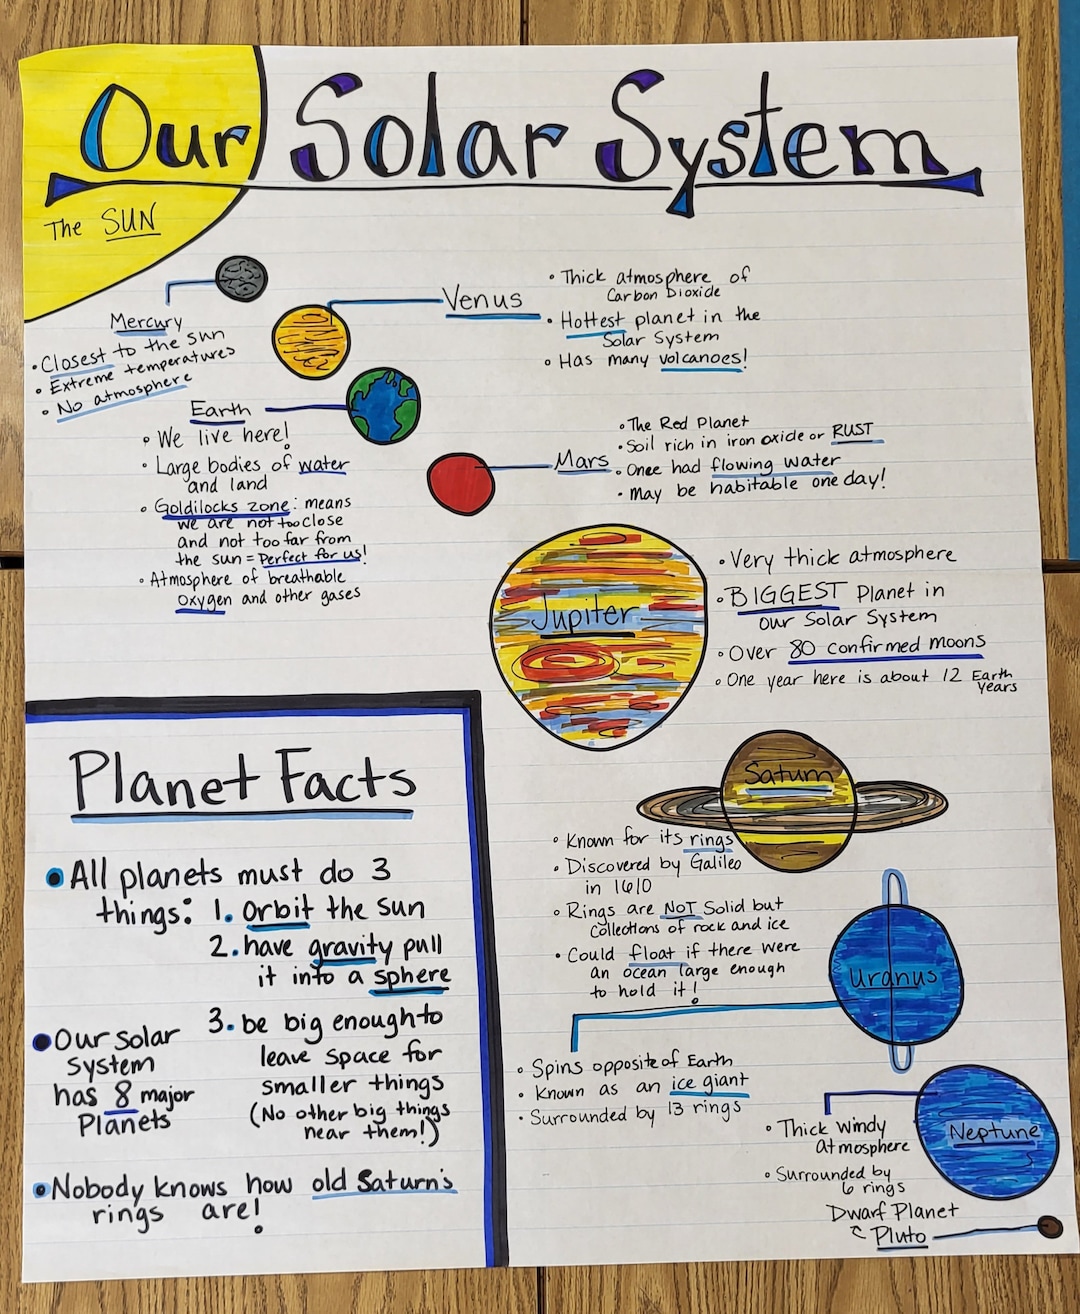 Our Solar System
The SUN
Mercury
• Closest to the sun
• Extreme temperatures
• No atmosphere
Venus
• Thick atmosphere of
Carbon Dioxide
• Hottest planet in the
Solar System
• Has many volcanoes!
Earth
• We live here!
• Large bodies of water
and land
• Goldilocks zone: means
we are not too close
and not too far from
the sun = Perfect for us!
• Atmosphere of breathable
Oxygen and other gases
Mars
• The Red Planet
• Soil rich in iron oxide or RUST
• Once had flowing water
• May be habitable one day!
Jupiter
• Very thick atmosphere
• BIGGEST Planet in
our Solar System
• Over 80 confirmed moons
• One year here is about 12 Earth
Years
Planet Facts
• All planets must do 3
things: 1. Orbit the sun
2. have gravity pull
it into a sphere
3. be big enough to
leave space for
smaller things
(No other big things
near them!)
• Our solar
system
has 8 major
Planets
• Nobody knows how old Saturn's
rings are!
Saturn
• Known for its rings
• Discovered by Galileo
in 1610
• Rings are NOT Solid but
collections of rock and ice
• Could float if there were
an ocean large enough
to hold it!
Uranus
• Spins opposite of Earth
• Known as an ice giant
• Surrounded by 13 rings
Neptune
• Thick Windy
atmosphere
• Surrounded by
6 rings
Dwarf Planet
Pluto